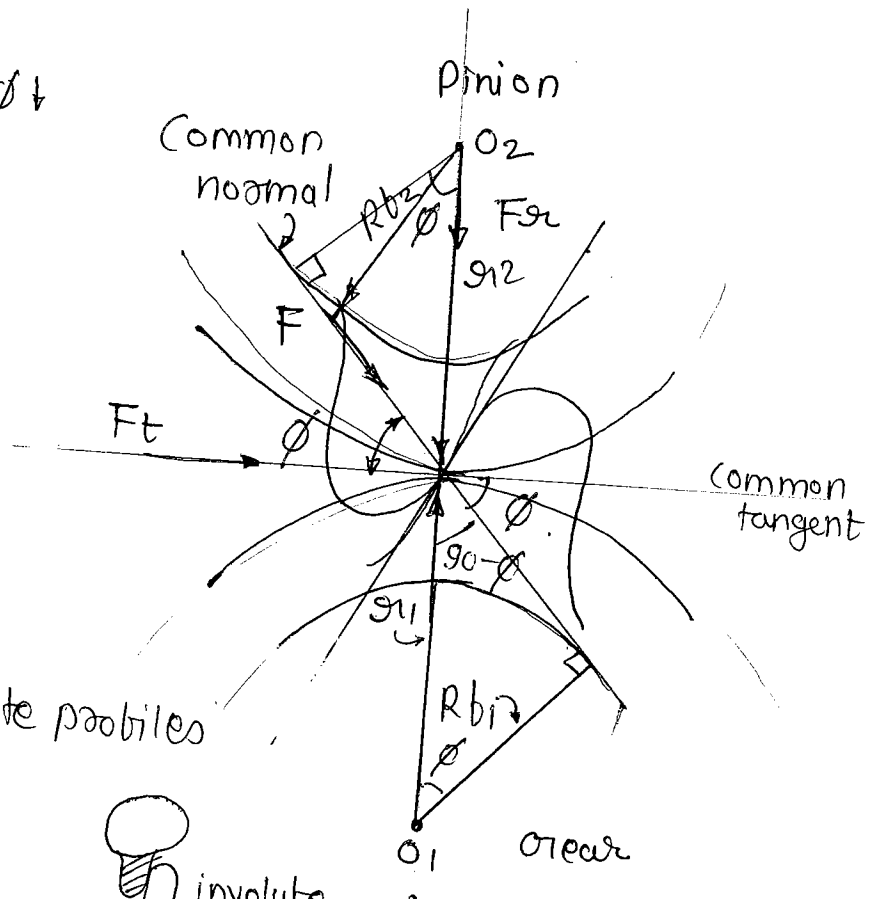 Pinion
ϕ↓
O2
Common
normal
Rb2
ϕ
Fr
r2
F
Ft
ϕ
Common
tangent
ϕ
90-ϕ
r1
Rb1
ϕ
te profiles
O1
Gear
involute